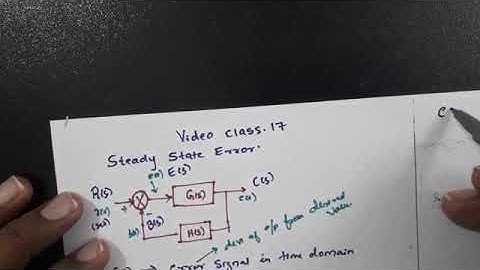 Video Class.17
Steady State Error.
e(t) E(s)
R(s)
G(s)
C(s)
c(t)
r(t)
+
-
B(s)
b(t)
H(s)
dev of o/p from desired value
Error Signal in time domain
C